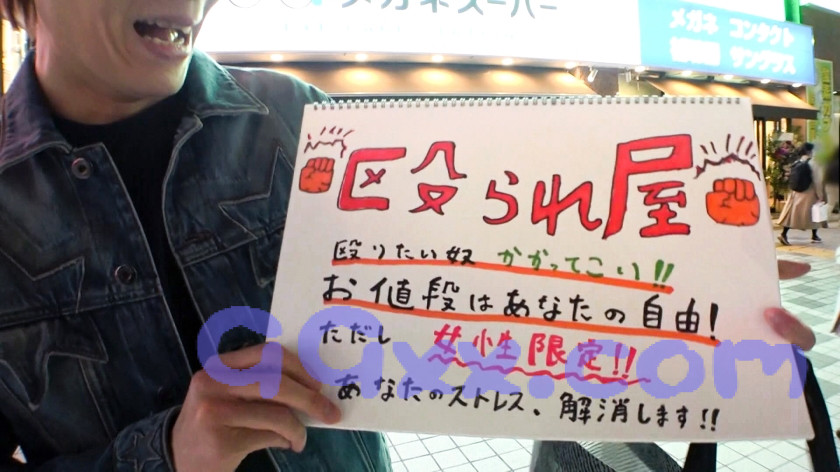 メガネスーパー
メガネ コンタクト
サングラス
殴られ屋
殴りたい奴 かかってこい!!
お値段はあなたの自由!
ただし 女性限定!!
あなたのストレス、解消します!!
gaxx.com